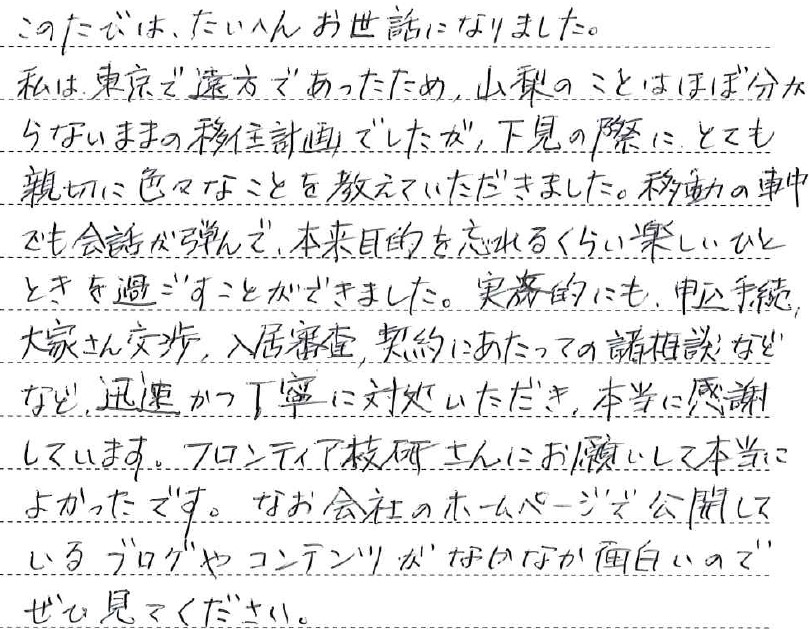 このたびは、たいへんお世話になりました。
私は東京で遠方であったため、山梨のことはほぼ分か
らないままの移住計画でしたが、下見の際にとても
親切に色々なことを教えていただきました。移動の車中
でも会話が弾んで、本来目的を忘れるくらい楽しいひと
ときを過ごすことができました。実務的にも、申込手続、
大家さん交渉、入居審査、契約にあたっての諸相談など
など、迅速かつ丁寧に対処いただき、本当に感謝
しています。フロンティア技研さんにお願いして本当に
よかったです。なお会社のホームページで公開して
いるブログやコンテンツがなかなか面白いので
ぜひ見てください。